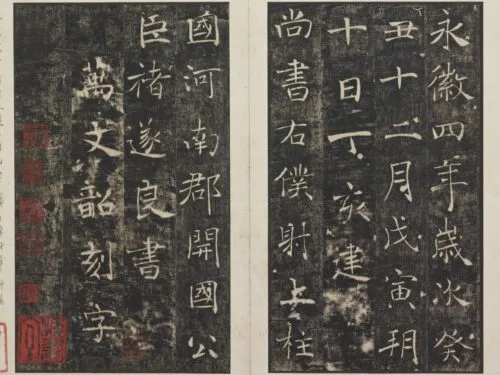 永徽四年歲次癸
丑十二月戊寅朔
十日丁亥建
尚書右僕射上柱
國河南郡開國公
臣褚遂良書
萬文韶刻字